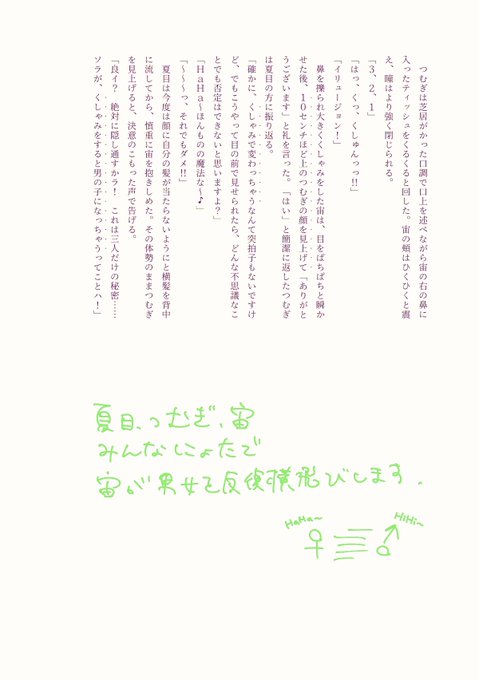 つむぎは芝居がかった口調で口上を述べながら宙の右の鼻に
入ったティッシュをくるくると回した。宙の頬はひくひくと震
え、瞳はより強く閉じられる。
「３、２、１」
「はっ、くっ、くしゅんっっ!!」
「イリュージョン！」
　鼻を擽られ大きくくしゃみをした宙は、目をぱちぱちと瞬か
せた後、１０センチほど上のつむぎの顔を見上げて「ありがと
うございます」と礼を言った。「はい」と簡潔に返したつむぎ
は夏目の方に振り返る。
「確かに、くしゃみで変わっちゃうなんて突拍子もないですけ
ど、でもこうやって目の前で見せられたら、どんな不思議なこ
とでも否定はできないと思いますよ？」
「ＨａＨａ～ほんものの魔法な～♪」
「～～～っ、それでもダメ!!」
　夏目は今度は顔に自分の髪が当たらないようにと横髪を背中
に流してから、慎重に宙を抱きしめた。その体勢のままつむぎ
を見上げると、決意のこもった声で告げる。
「良ィ？　絶対に隠し通すかラ！　これは三人だけの秘密……
ソラが、くしゃみをすると男の子になっちゃうってことハ！」
夏目、つむぎ、宙
みんなにょたで
宙が男女で反復横飛びします.
HaHa～
HiHi～
♀
♂